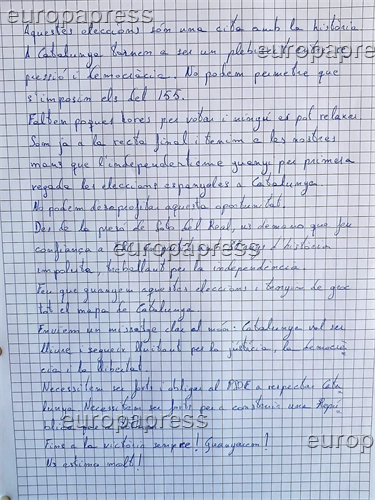 Aquestes eleccions són una cita amb la història
A Catalunya tornem a ser un plebiscit
pressió i democràcia. No podem permetre que
s'imposin els del 155.
Falten poques hores per votar i ningú es pot relaxar
Som ja a la recta final i tenim a les nostres
mans que l'independentisme guanyi per primera
vegada les eleccions espanyoles a Catalunya.
No podem desaprofitar aquesta oportunitat.
Des de la presó de Soto del Real, us demano que feu
confiança a d'història
impoluta, treballant per la independència.
Feu que guanyem aquestes eleccions i tenyim de groc
tot el mapa de Catalunya
Enviem un missatge clar al món: Catalunya vol ser
lliure i segueix lluitant per la justícia, la democrà
cia i la llibertat.
Necessitem ser forts i obligar al PSOE a respectar Cata
lunya. Necessitem ser forts per a construir una Repú
blica
Fins a la victòria sempre! Guanyarem!
Us estimo molt!
europapress
europapress
europapress
europapress
europapress
europapress